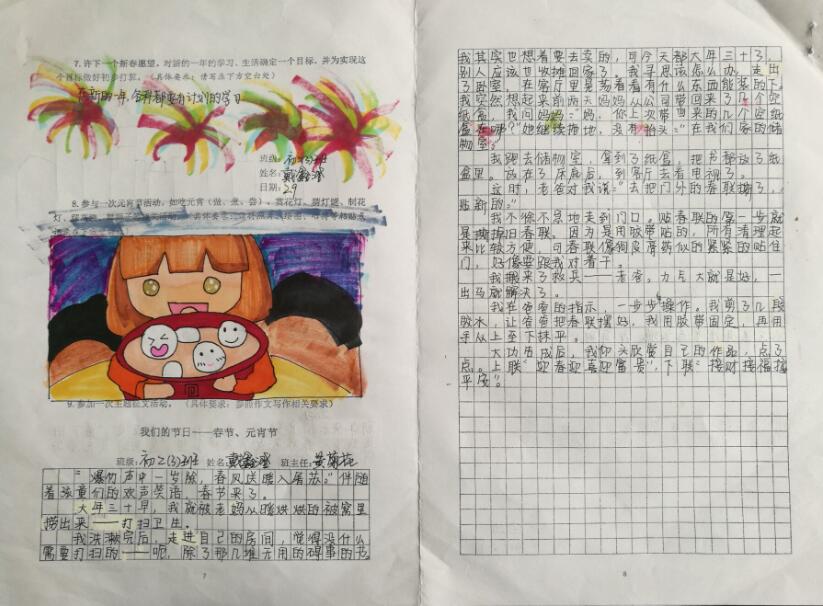 7. 许下一个新春愿望，对新的一年的学习、生活确定一个目标，并为实现这
个目标做好初步打算。（具体要求：请写在下方空白处）
在新的一年，各科都要有计划的学习
班级：初2(3)班
姓名：戴鑫
日期：2.9
8. 参与一次元宵活动，如吃元宵（做、煮、尝）、赏花灯、猜灯谜、制花
9. 参加一次主题征文活动。（具体要求：参照作文写作相关要求）
我们的节日——春节、元宵节
班级：初2(3)班 姓名：戴鑫 班主任：黄菊花
“爆竹声中一岁除，春风送暖入屠苏。”伴随
着孩童们的欢声笑语，春节来了。
大年三十早，我就被老妈从暖烘烘的被窝里
捞出来——打扫卫生。
我洗漱完后，走进自己的房间，觉得没什么
需要打扫的——呃，除了那几堆无用的碍事的书
7
我其实也想着要去卖的，可今天都大年三十了，
别人应该也收摊回家了。我寻思该怎么办，走出
了卧室，在客厅里晃荡着看有什么东西能装的下。
我突然想起来前两天妈妈从公司带回来了几个空
纸盒，我问妈妈：“妈，你上次带回来的几个空纸
盒在哪？”她继续拖地，没有抬头：“在我们家的储
物室。”
我跑去储物室，拿到了纸盒，把书都放了纸
盒里。放在了床底后，到客厅去看电视了。
这时，老爸对我说：“去把门外的春联撕了，
贴新的。”
我不徐不急地走到门口。贴春联的第一步就
是撕掉旧春联。因为是用胶带贴的，所有清理起
来比较方便，可春联像狗皮膏药似的紧紧的贴住
门，好像要跟我对着干。
我搬来了救兵——老爸。力气大就是好，一
出马就解决了。
我在爸爸的指示，一步步操作。我剪了几段
胶水，让爸爸把春联摆好，我用胶带固定，再用
手从上至下抹平。
大功告成后，我仰头欣赏自己的作品，点了
点。上联“迎春迎喜迎富贵”，下联“接财接福接
平安”。
8